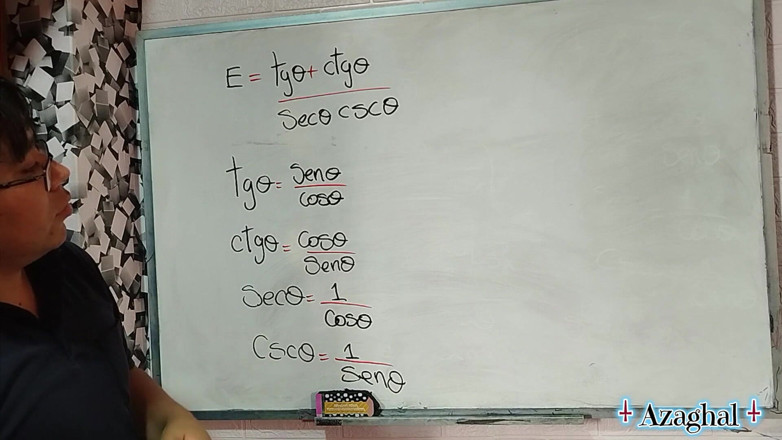 E = tgθ + ctgθ
secθ cscθ
tgθ = senθ
cosθ
ctgθ = cosθ
senθ
secθ = 1
cosθ
cscθ = 1
senθ
Azaghal